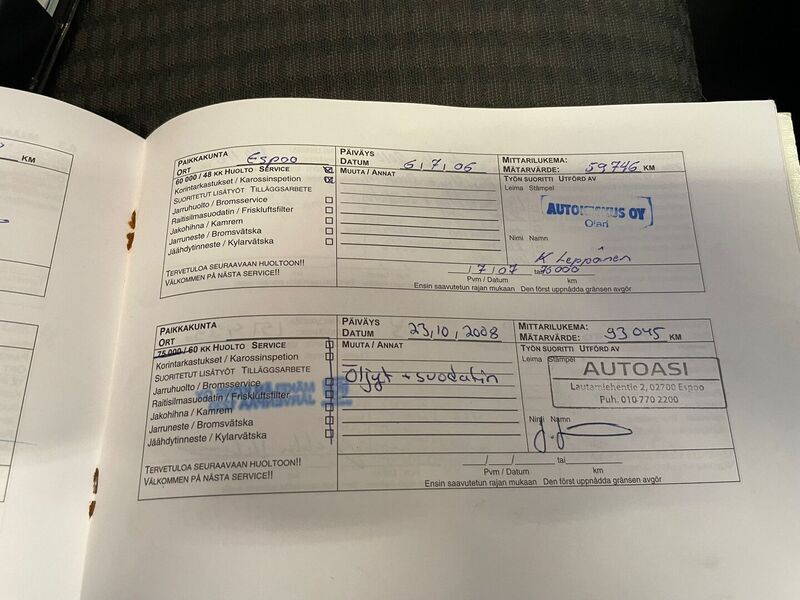 KM
PAIKKAKUNTA Espoo
ORT
60 000 / 48 KK HUOLTO SERVICE
Korintarkastukset / Karossinspetion
SUORITETUT LISÄTYÖT TILLÄGGSARBETE
Jarruhuolto / Bromsservice
Raitisilmasuodatin / Friskluftsfilter
Jakohihna / Kamrem
Jarruneste / Bromsvätska
Jäähdytinneste / Kylarvätska
TERVETULOA SEURAAVAAN HUOLTOON!!
VÄLKOMMEN PÅ NÄSTA SERVICE!!
PÄIVÄYS
DATUM 6,7,06
MUUTA / ANNAT
MITTARILUKEMA:
MÄTARVÄRDE: 59746 KM
TYÖN SUORITTI UTFÖRD AV
Leima Stämpel
OY
Olari
Nimi Namn
K Leppänen
/ 7 / 07 tai 75000
Pvm / Datum km
Ensin saavutetun rajan mukaan Den först uppnådda gränsen avgör
PAIKKAKUNTA
ORT
75 000 / 60 KK HUOLTO SERVICE
Korintarkastukset / Karossinspetion
SUORITETUT LISÄTYÖT TILLÄGGSARBETE
Jarruhuolto / Bromsservice
Raitisilmasuodatin / Friskluftsfilter
Jakohihna / Kamrem
Jarruneste / Bromsvätska
Jäähdytinneste / Kylarvätska
TERVETULOA SEURAAVAAN HUOLTOON!!
VÄLKOMMEN PÅ NÄSTA SERVICE!!
PÄIVÄYS
DATUM 23,10,2008
MUUTA / ANNAT
Öljyt + suodatin
MITTARILUKEMA:
MÄTARVÄRDE: 93045 KM
TYÖN SUORITTI UTFÖRD AV
Leima Stämpel
AUTOASI
Lautamiehentie 2, 02700 Espoo
Puh. 010 770 2200
Nimi Namn
/ / tai
Pvm / Datum km
Ensin saavutetun rajan mukaan Den först uppnådda gränsen avgör